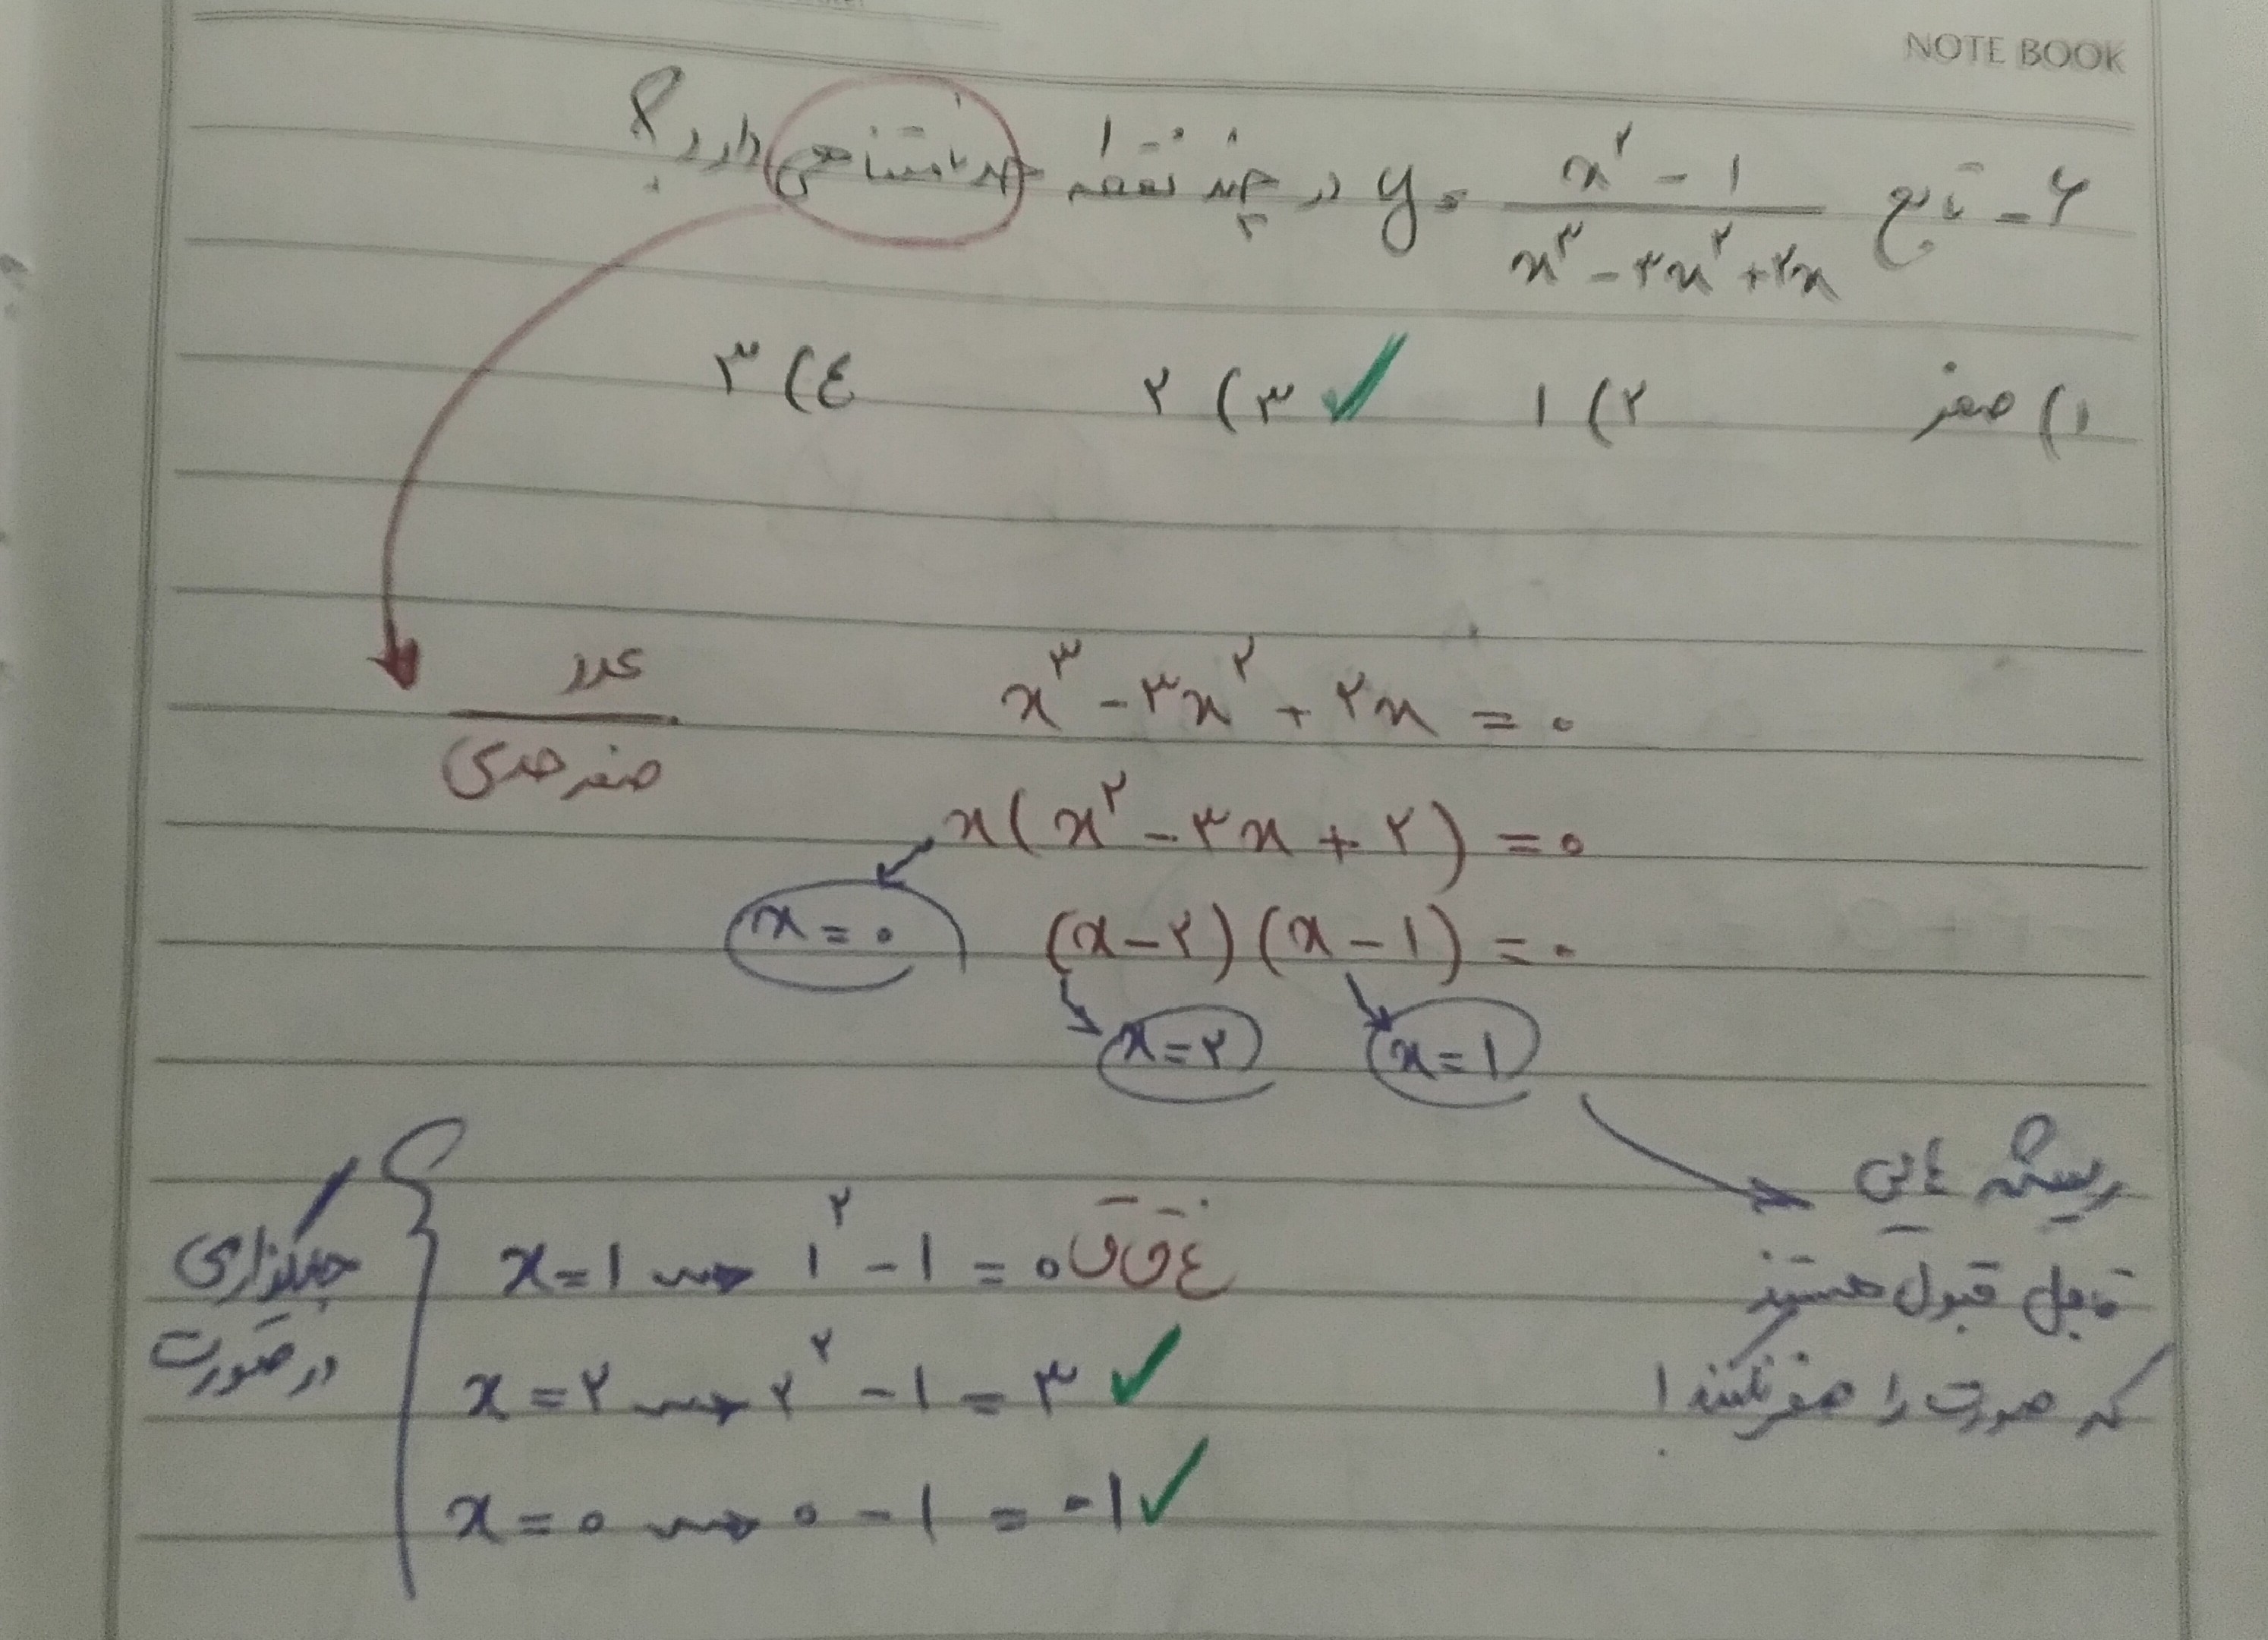 NOTE BOOK
۶- تابع y = (x^۲ - ۱)/(x^۳ - ۳x^۲ + ۲x) در چند نقطه حد نامتناهی دارد؟
۱) صفر ۲) ۱ ۳) ۲ ✓ ۴) ۳
عدد
صفر حدی
x^۳ - ۳x^۲ + ۲x = ۰
x(x^۲ - ۳x + ۲) = ۰
x = ۰ (x - ۲)(x - ۱) = ۰
x = ۲ x = ۱
ریشه هایی
قابل قبول هستند
که صورت را صفر نکنند!
جایگذاری
در صورت
x = ۱ → ۱^۲ - ۱ = ۰ غ ق ق
x = ۲ → ۲^۲ - ۱ = ۳ ✓
x = ۰ → ۰ - ۱ = -۱ ✓